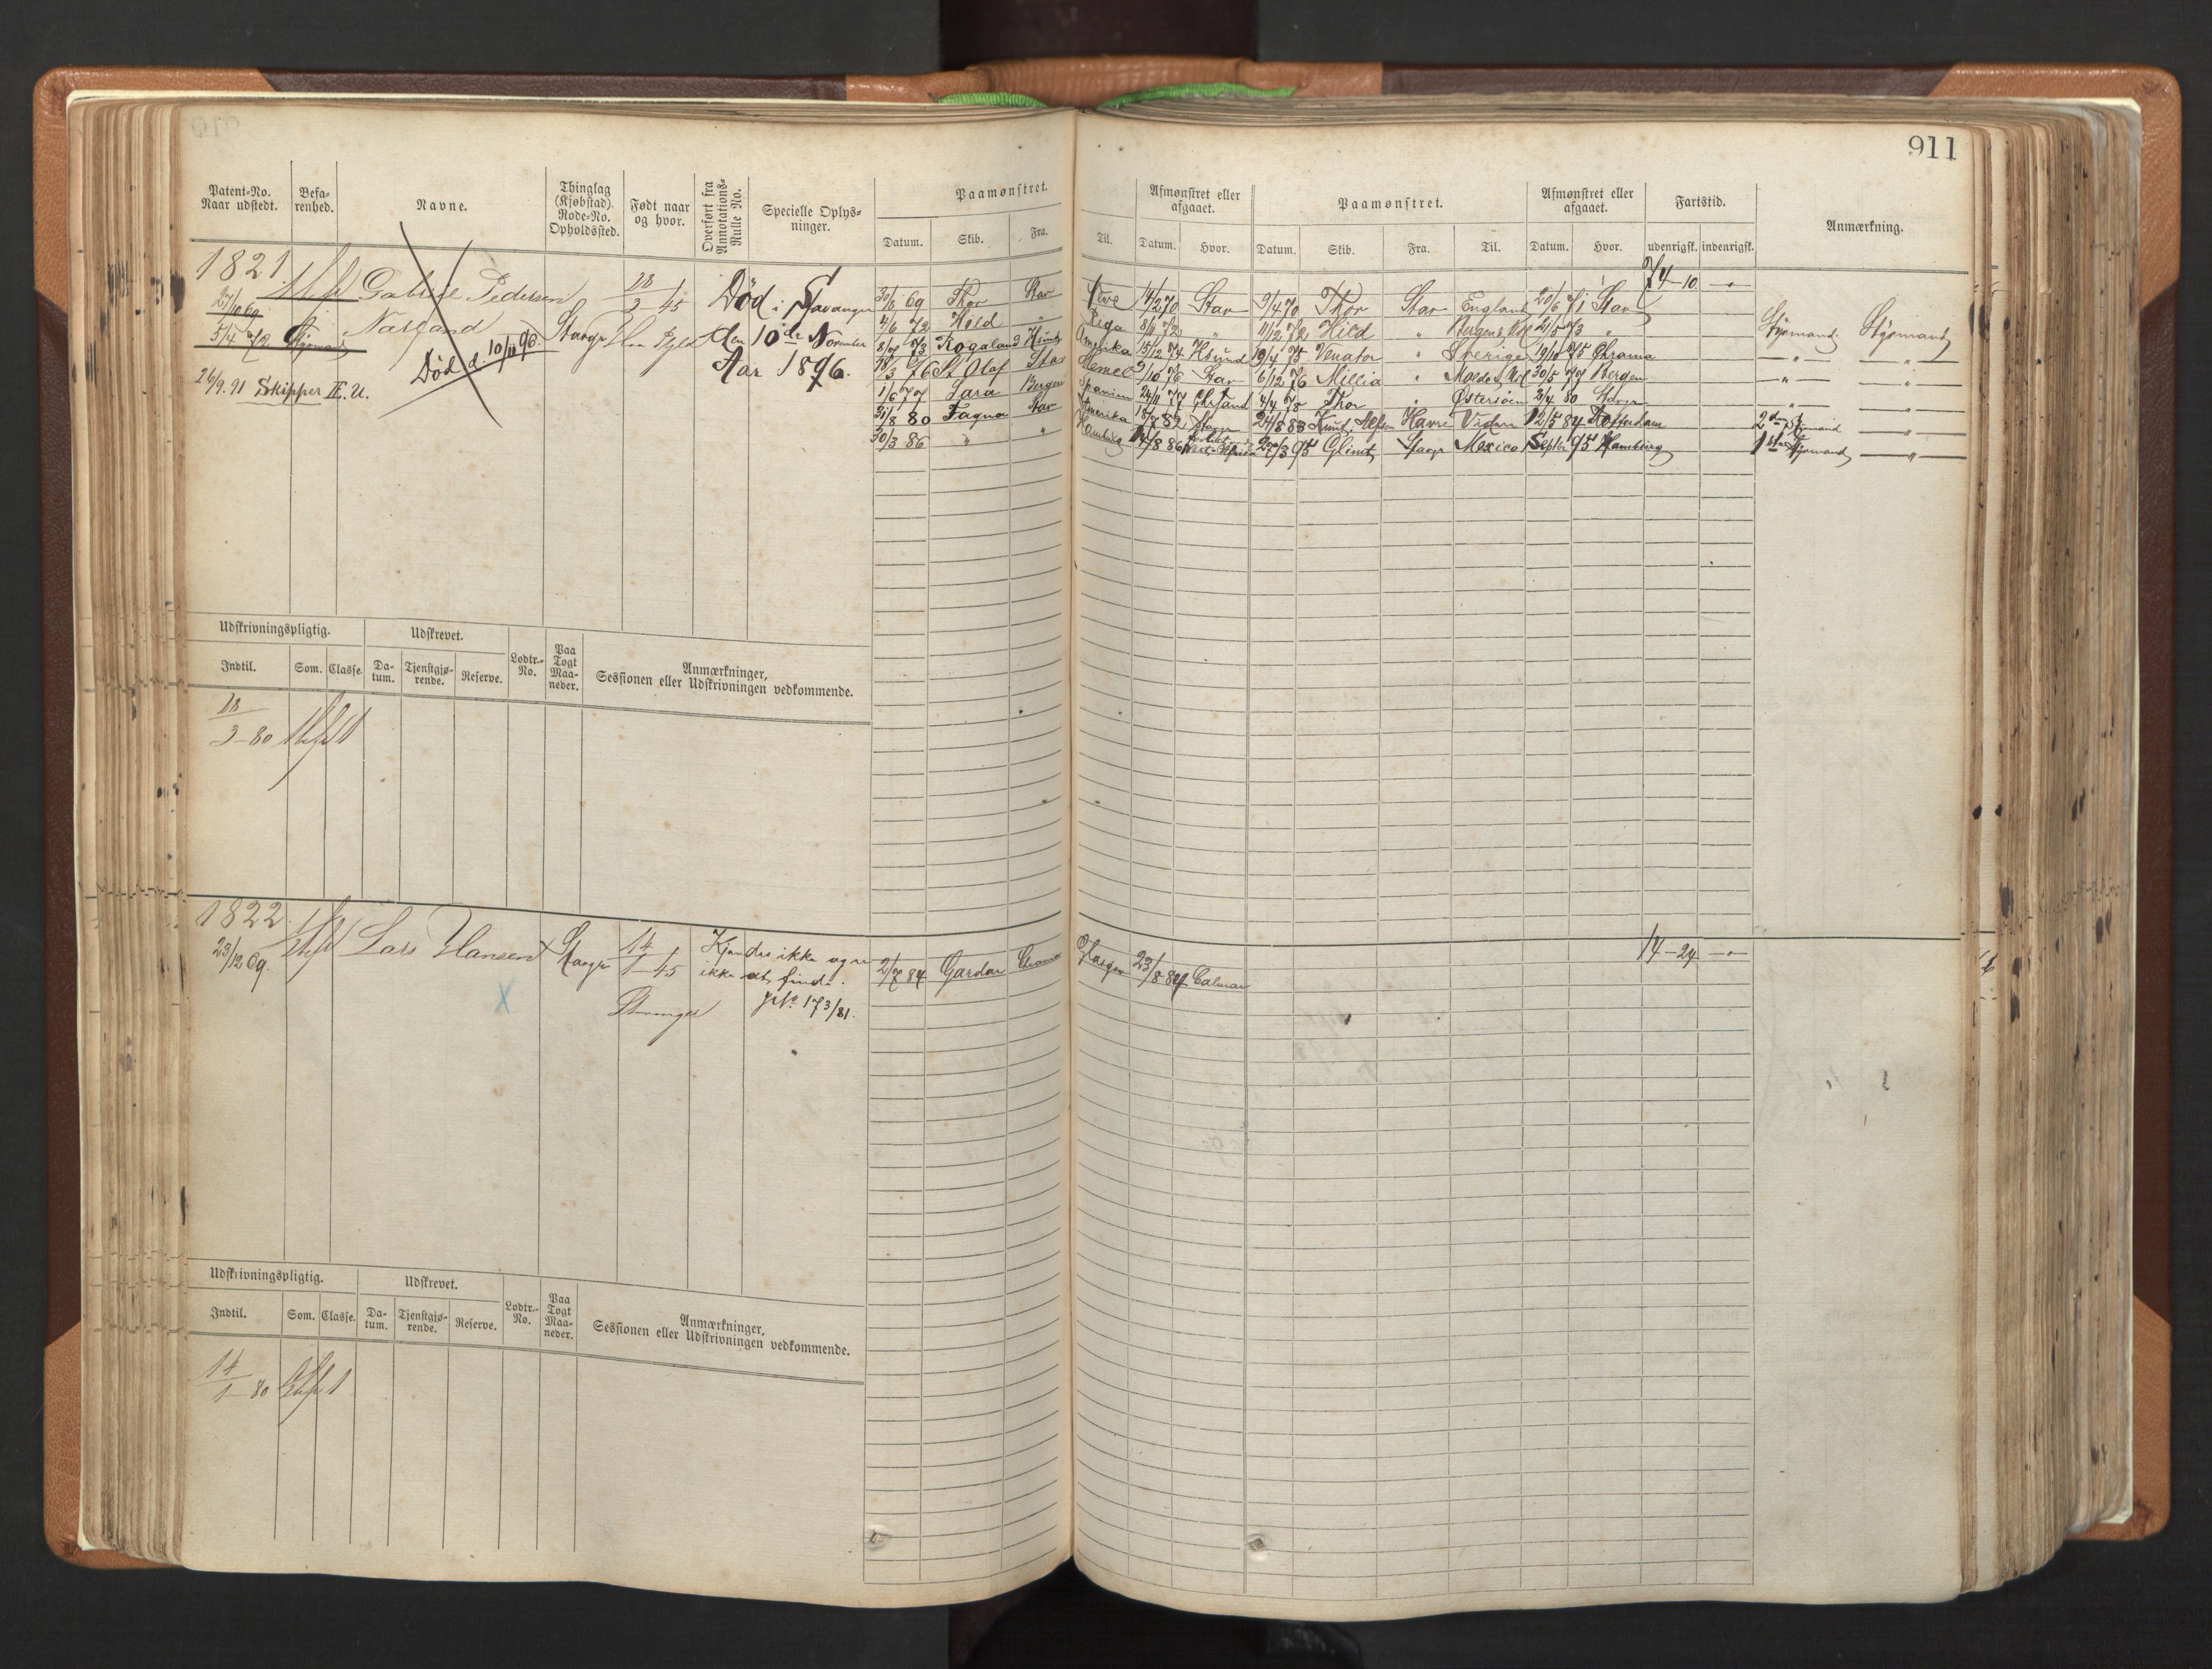 911
Patent-No. Naar udstedt. Befa-renhed. Navne. Thinglag (Kjøbstad). Rode-No. Opholdssted. Født naar og hvor. Overført fra Annotations-Rulle No. Specielle Oplys-ninger. Paamønstret. Afmønstret eller afgaaet. Paamønstret. Afmønstret eller afgaaet. Fartstid. Anmærkning.
Datum. Skib. Fra. Til. Datum. Hvor. Datum. Skib. Fra. Til. Datum. Hvor. udenrigsk. indenrigsk.
1821 Gabriel Pedersen 18/3 45 Død i Stavanger
27/10 69 Narland Stavgr den 10de November
5/4 72 Styrmand Død d. 10/11 96. Aar 1896.
26/9. 91 Skipper II. U.
74-10
30/6 69 Thor Stav 14/2 70 Stav 9/4 70 Thor Stav England 20/6 71 Stav
4/6 72 Hild " Riga 8/11 72 " 11/12 72 Hild " 21/5 73 " Styrmand Styrmand
8/7 73 Rogaland Amerika 15/12 74 19/4 75 Venator " Sverige 19/10 75 Chrania " "
18/3 76 St Olaf Stav Memel 3/10 76 Stav 6/12 76 Millia " 30/5 77 Bergen " "
1/6 77 Sara Bergen Spanien 24/11 77 Chrsand 4/4 78 Thor " Østersøen 2/4 80 " "
31/8 80 Fagna Stav Amerika 18/7 82 Stavgr 24/8 83 Havre 12/5 84 Rotterdam 2den Styrmand "
30/3 86 " " Hamburg 14/8 86 20/3 95 Glimt Stavgr Mexico Septbr 95 Hamburg 1ste Styrmand "
Udskrivningspligtig. Udskrevet. Lodtr.-No. Paa Togt Maa-neder. Anmærkninger, Sessionen eller Udskrivningen vedkommende.
Indtil. Som. Classe. Da-tum. Tjenstgjø-rende. Reserve.
18/3-80
1822 Lars Hansen Stavgr 14/1-45 Kjendes ikke og er
23/12 69. ikke at finde.
Stavanger JNo. 173/81.
2/7 84 Gardar Chrania Glasgow 23/8 84 Calmar
14-24
X
Udskrivningspligtig. Udskrevet. Lodtr.-No. Paa Togt Maa-neder. Anmærkninger, Sessionen eller Udskrivningen vedkommende.
Indtil. Som. Classe. Da-tum. Tjenstgjø-rende. Reserve.
14/1-80